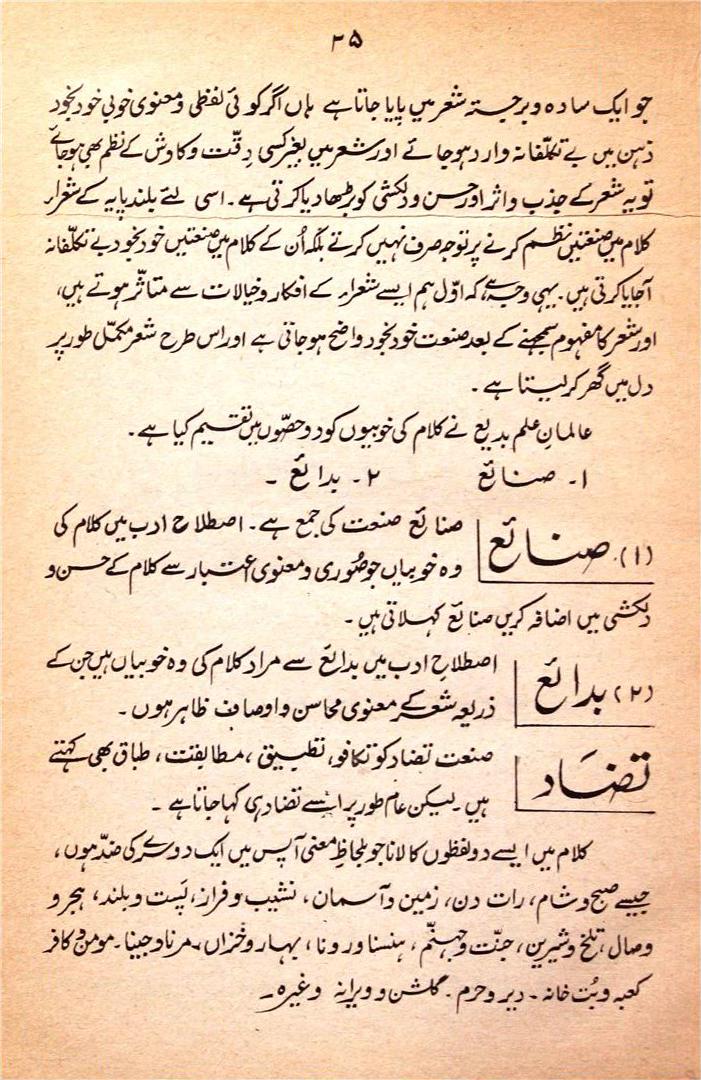 ۲۵
جو ایک سادہ و برجستہ شعر میں پایا جاتا ہے ہاں اگر کوئی لفظی و معنوی خوبی خود بخود
ذہن میں بے تکلّفانہ وارد ہو جائے اور شعر میں بغیر کسی دِقّت و کاوش کے نظم بھی ہو جائے
تو یہ شعر کے جذب و اثر اور حسن و دلکشی کو بڑھا دیا کرتی ہے۔ اسی لئے بلند پایہ کے شعراء
کلام میں صنعتیں نظم کرنے پر توجہ صرف نہیں کرتے بلکہ اُن کے کلام میں صنعتیں خود بخود بے تکلّفانہ
آجایا کرتی ہیں۔ یہی وجہ ہے کہ اوّل ہم ایسے شعراء کے افکار و خیالات سے متاثّر ہوتے ہیں،
اور شعر کا مفہوم سمجھنے کے بعد صنعت خود بخود واضح ہو جاتی ہے اور اس طرح شعر مکمّل طور پر
دل میں گھر کر لیتا ہے۔
عالمانِ علم بدیع نے کلام کی خوبیوں کو دو حصّوں میں تقسیم کیا ہے۔
۱۔ صنائع ۲۔ بدائع ۔
(۱) صنائع
صنائع صنعت کی جمع ہے۔ اصطلاح ادب میں کلام کی
وہ خوبیاں جو صُوری و معنوی اعتبار سے کلام کے حسن و
دلکشی میں اضافہ کریں صنائع کہلاتی ہیں۔
(۲) بدائع
اصطلاحِ ادب میں بدائع سے مراد کلام کی وہ خوبیاں ہیں جن کے
ذریعہ شعر کے معنوی محاسن و اوصاف ظاہر ہوں۔
تضَاد
صنعت تضاد کو تکافو، تطبیق، مطابقت، طباق بھی کہتے
ہیں۔ لیکن عام طور پر اسے تضاد ہی کہا جاتا ہے ۔
کلام میں ایسے دو لفظوں کا لانا جو بلحاظِ معنی آپس میں ایک دوسرے کی ضد ہوں،
جیسے صبح و شام، رات دن، زمین و آسمان، نشیب و فراز، پَست و بلند، ہجر و
وصال، تلخ و شیریں، جنّت و جہنّم، ہنسنا و رونا، بہار و خزاں، مرنا و جینا۔ مومن و کافر
کعبہ و بُت خانہ ۔ دیر و حرم ۔ گلشن و ویرانہ وغیرہ ۔